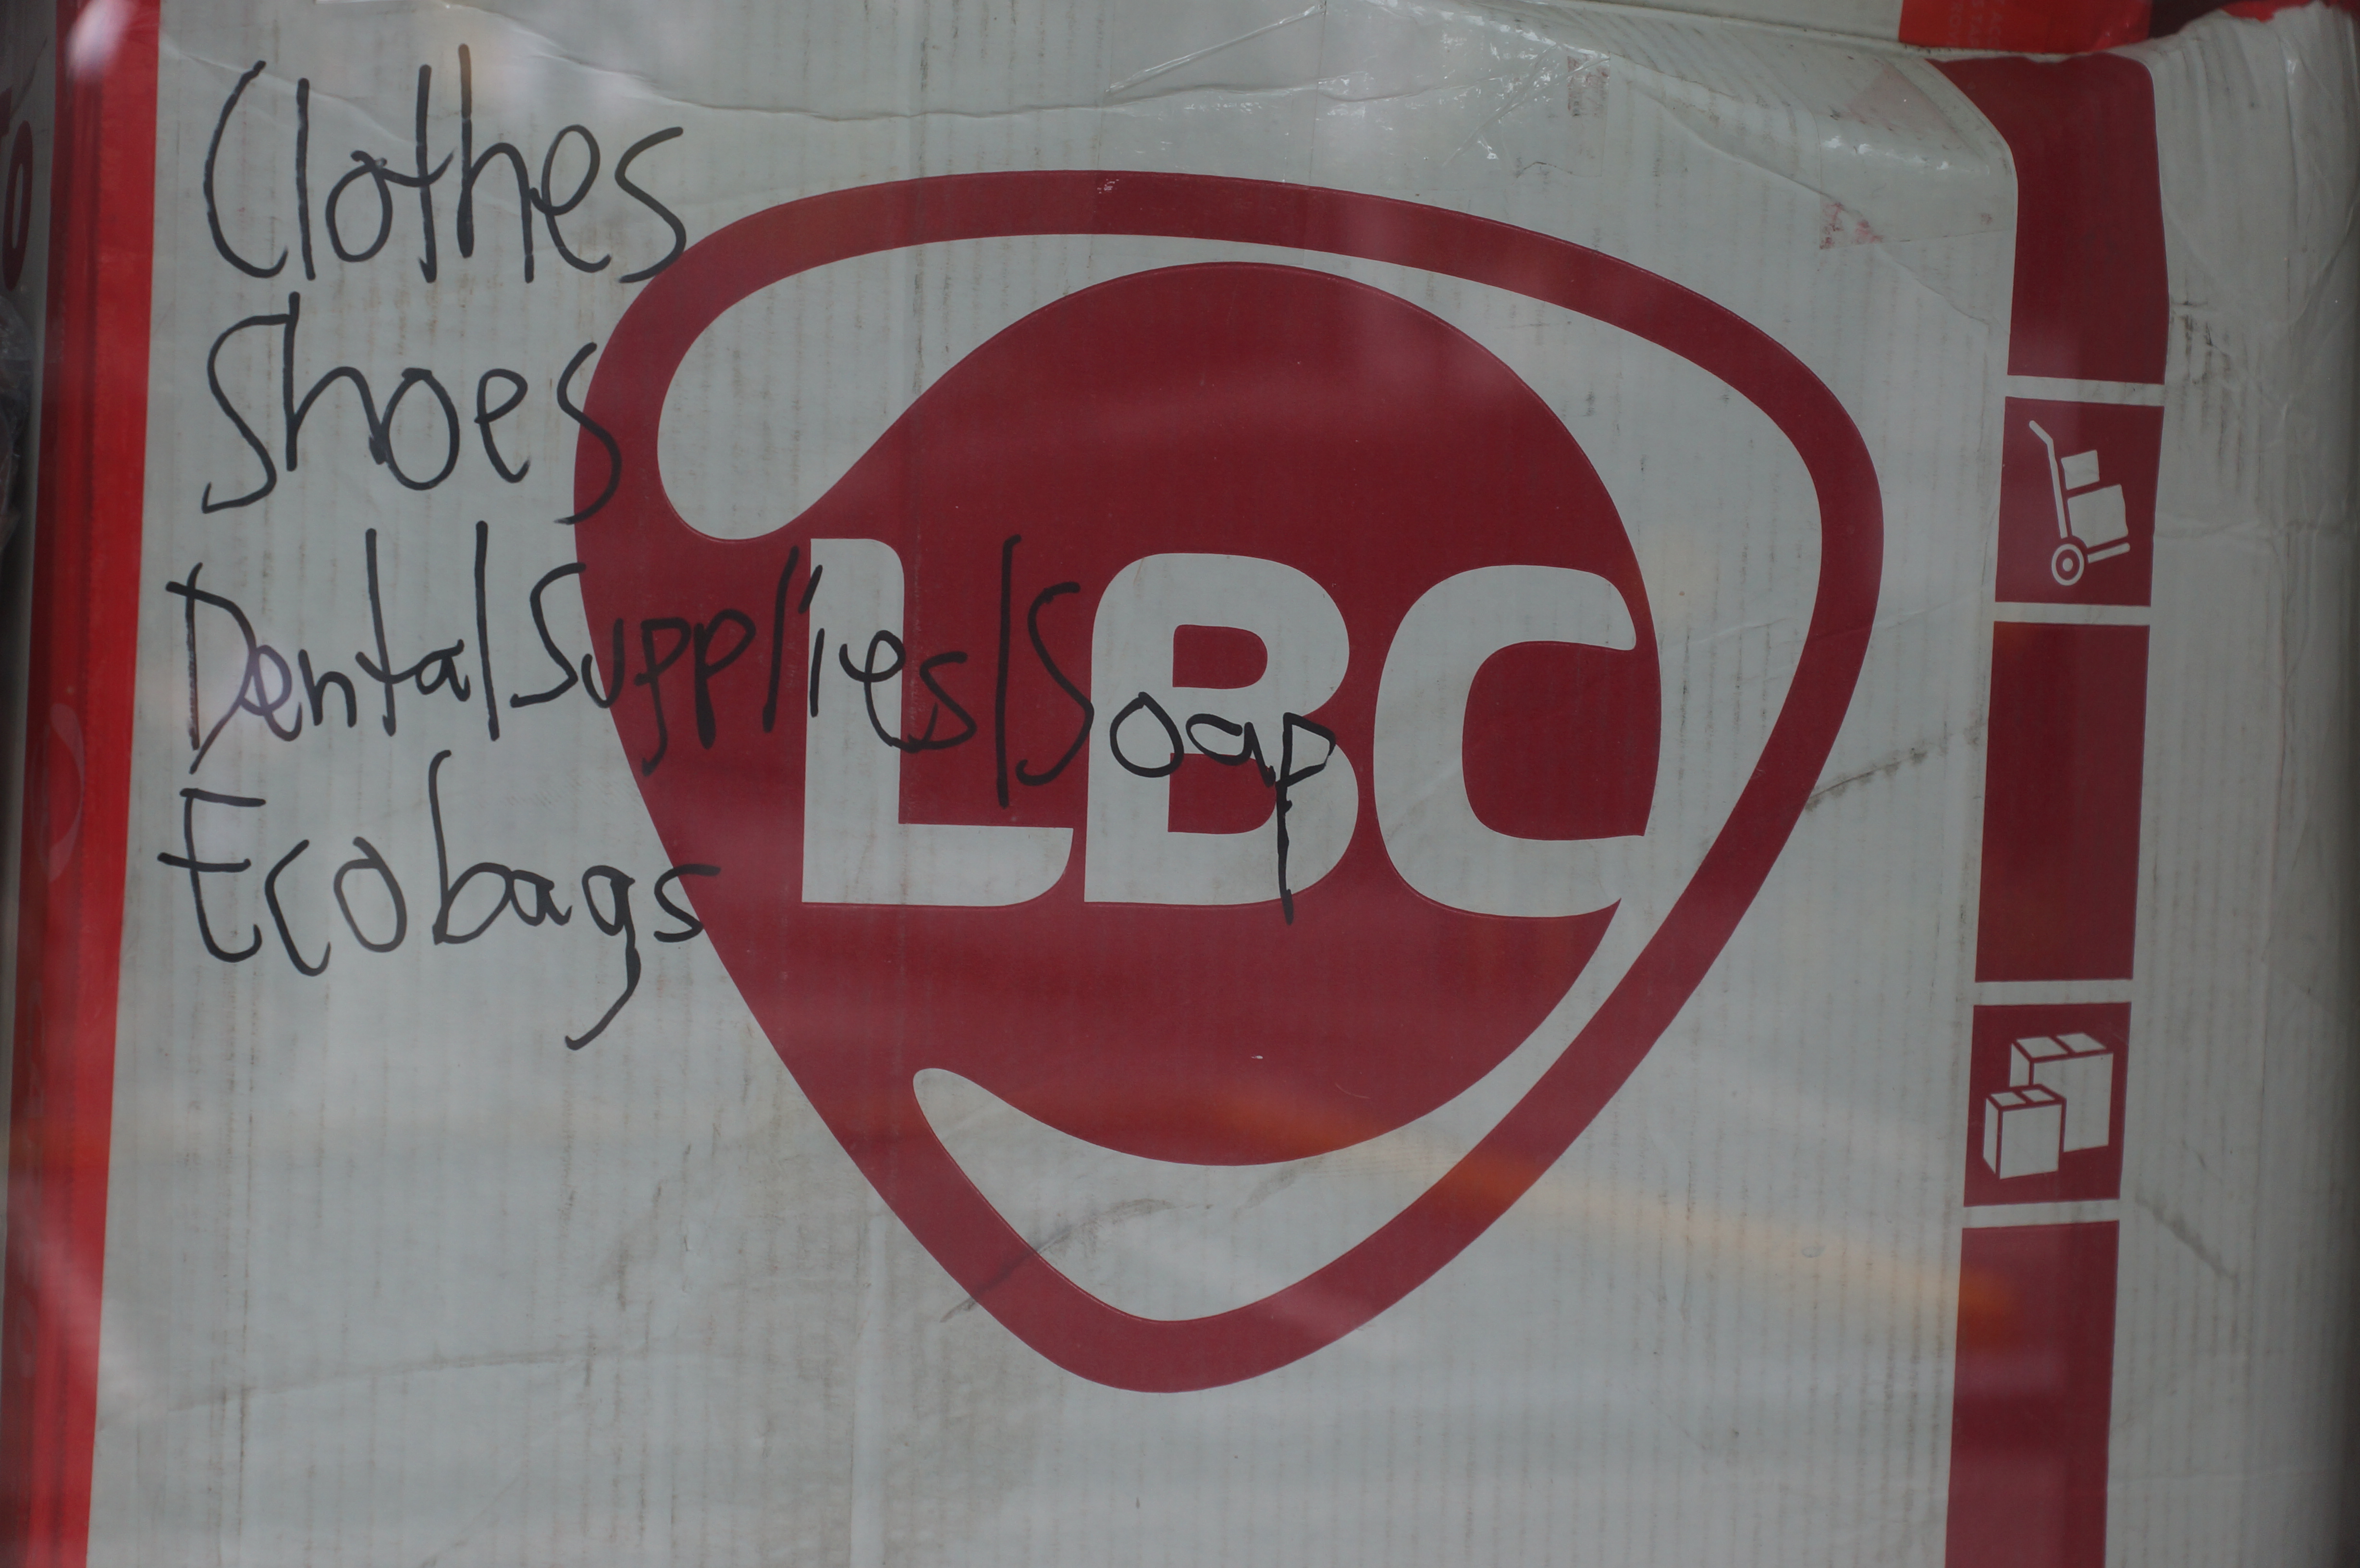 Clothes
Shoes
Dental Supplies/Soap
Ecobags
LBC